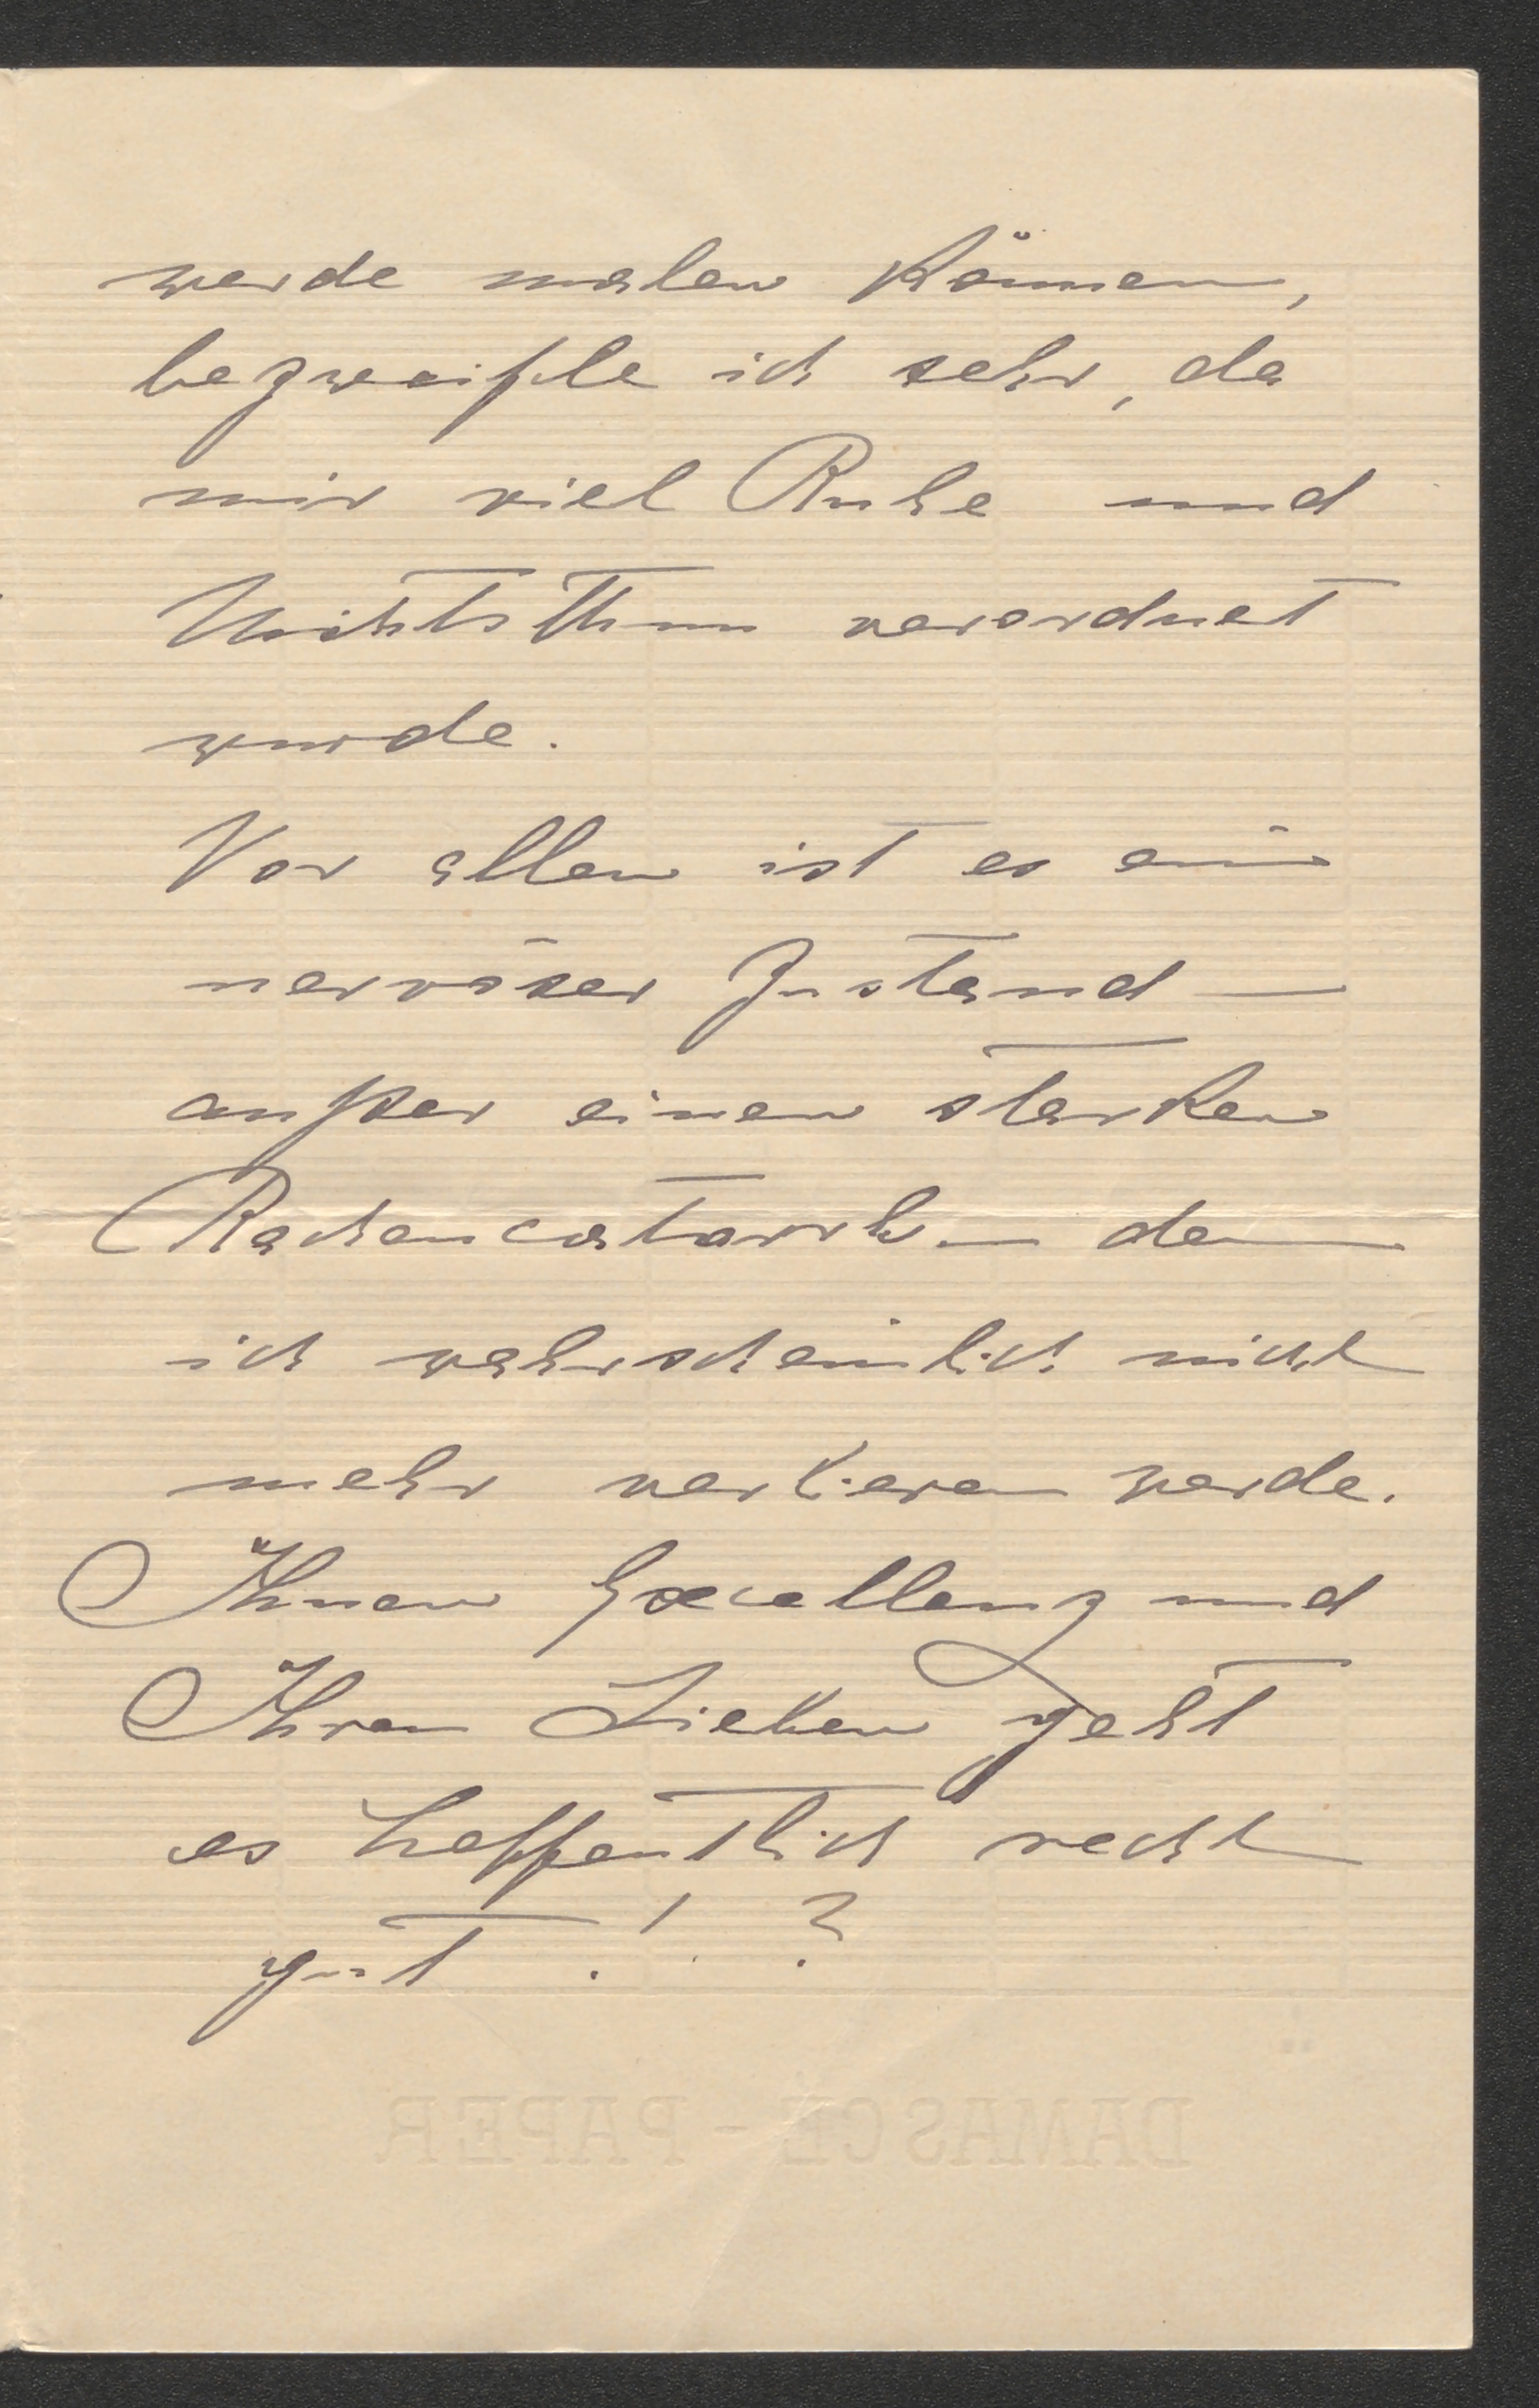 werde malen können,
bezweifle ich sehr, da
mir viel Ruhe und
NichtsThun verordnet
wurde.
Vor allen ist es ein
nervöser Zustand —
außer einen starken
Rachencatarrh — den
ich wahrscheinlich nicht
mehr verlieren werde.
Ihnen Excellenz und
Ihren Lieben geht
es hoffentlich recht
gut ! ?
DAMASCÉ - PAPER